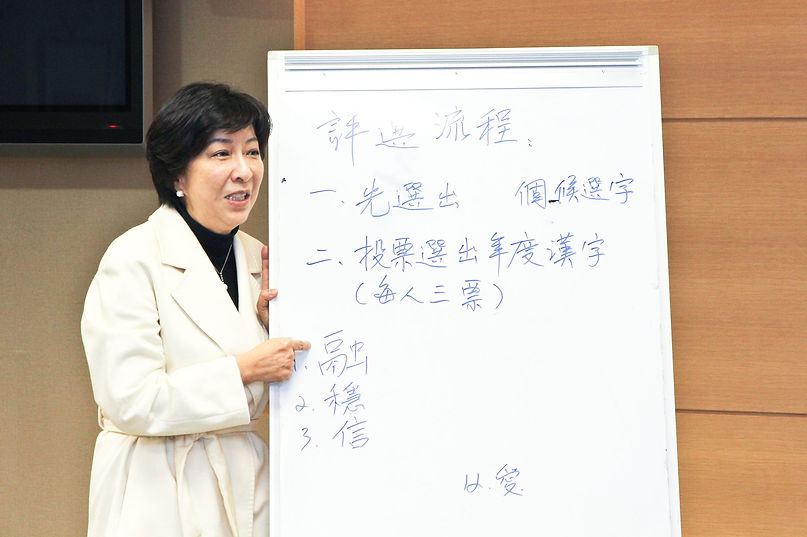 評選流程：
一、先選出　個候選字
二、投票選出年度漢字
（每人三票）
1. 融
2. 穩
3. 信
12. 愛